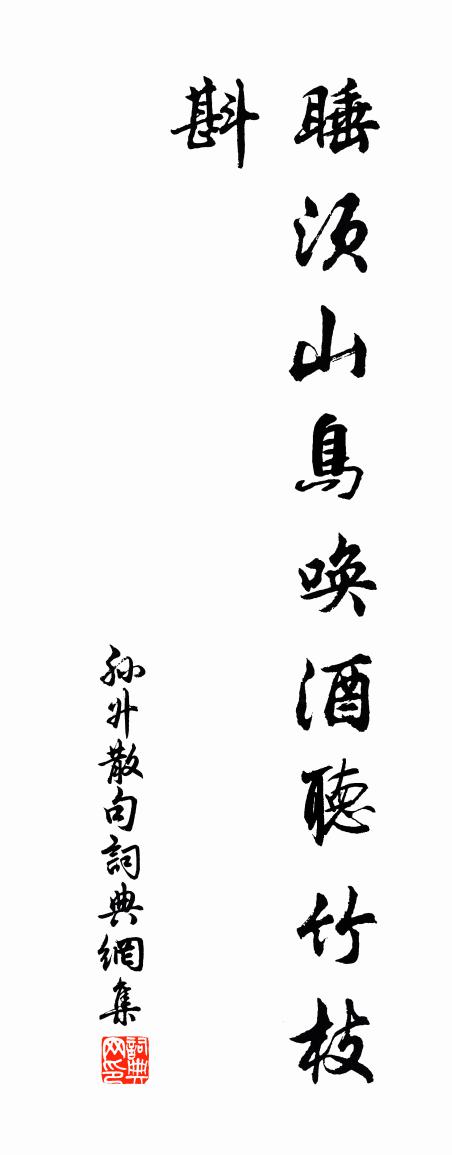 睡須山鳥喚酒聽竹枝
斟
孙升散句詞典網集
詞典网印